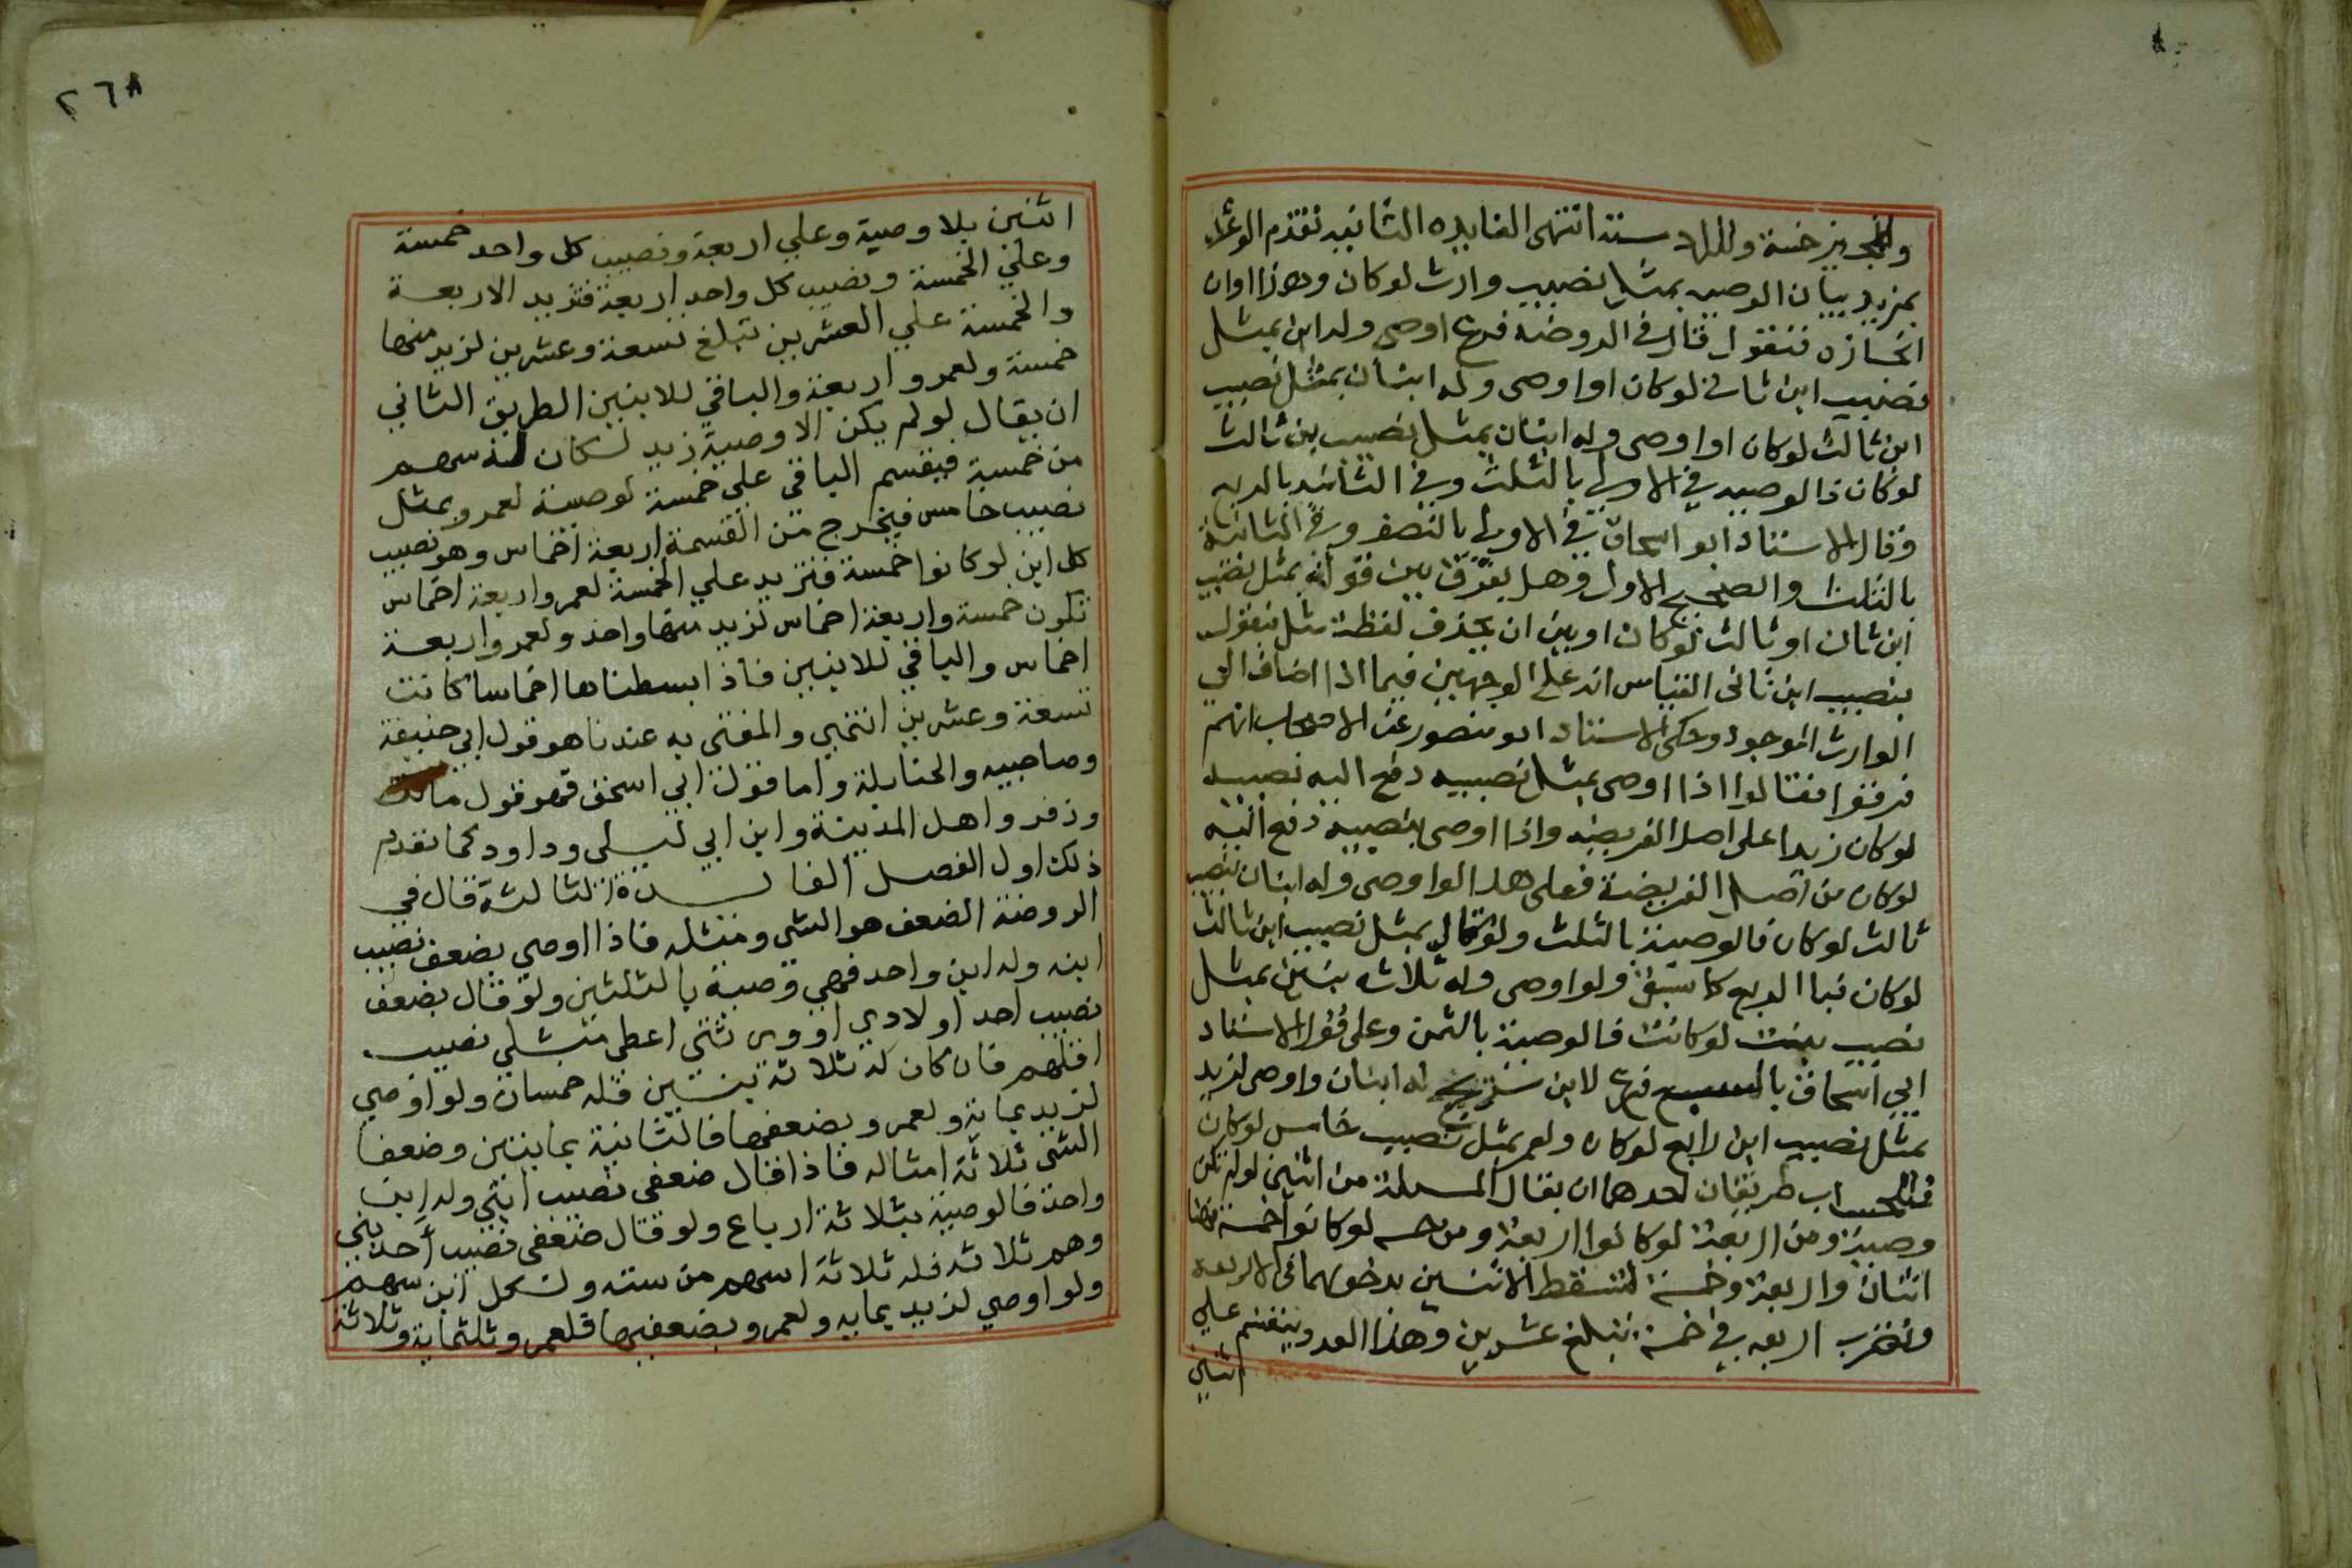 وللمجيز خمسة وللراد ستة انتهى الفايده الثانيه تقدم الوعد
بمزيد بيان الوصيه بمثل نصيب وارث لو كان وهذا اوان
انجازه فنقول قال في الروضه فرع اوصى وله ابن بمثل
نصيب ابن ثاني لو كان او اوصى وله ابنان بمثل نصيب
ابن ثالث لو كان او اوصى وله ابنان بمثل نصيب بن ثالث
لو كان فالوصيه في الاولى بالثلث وفي الثانيه بالربع
وقال الاستاذ ابو اسحاق في الاولى بالنصف وفي الثانية
بالثلث والصحيح الاول وهل يفرق بين قوله بمثل نصيب
ابن ثان او ثالث لو كان او بين ان يحذف لفظة مثل فيقول
بنصيب ابن ثانى القياس انه على الوجهين فيما اذا اضاف الى
الوارث الموجود وحكى الاستاذ ابو منصور عن الاصحاب انهم
فرقوا فقالوا اذا اوصى بمثل نصيبه دفع اليه نصيبه
لو كان زيدا على اصل الفريضه واذا اوصى بنصيبه دفع اليه
لو كان من اصل الفريضة فعلى هذا لو اوصى وله ابنان بنصيب
ثالث لو كان فالوصية بالثلث ولو قال بمثل نصيب ابن ثالث
لو كان فبا الربع كما سبق ولو اوصى وله ثلاثه بنين بمثل
نصيب بنت لو كانت فالوصية بالثمن وعلى قول الاستاد
ابي اسحاق بالسبع فرع لابن سريج له ابنان واوصى لزيد
بمثل نصيب ابن رابع لو كان ولعمر بمثل نصيب خامس لو كان
فللحساب طريقان احدهما ان يقال المسلة من اثنين لو لم تكن
وصية ومن اربعة لو كانوا اربعة ومن خمسه لو كانوا خمسة فهنا
اثنان واربعة وخمسة فتسقط الاثنين بدخولهما في الاربعه
وتضرب اربعه في خمسة تبلغ عشرين وهذا العدد ينقسم علي
اثنين
٢٦٨
اثنين بلا وصية وعلي اربعة ونصيب كل واحد خمسة
وعلي الخمسة ونصيب كل واحد اربعة فتزيد الاربعة
والخمسة علي العشرين تبلغ تسعة وعشرين لزيد منها
خمسة ولعمرو اربعة والباقي للابنين الطريق الثاني
ان يقال لو لم يكن الا وصية زيد لكان له سهم
من خمسة فيقسم الباقي علي خمسة لوصية لعمرو بمثل
نصيب خامس فيخرج من القسمة اربعة اخماس وهو نصيب
كل ابن لو كانوا خمسة فنزيد علي الخمسة لعمرو اربعة اخماس
تكون خمسة واربعة اخماس لزيد منها واحد ولعمرو اربعة
اخماس والباقي للابنين فاذا بسطناها اخماسا كانت
تسعة وعشرين انتهي والمفتى به عندنا هو قول ابي حنيفة
وصاحبيه والحنابلة واما قول ابي اسحق فهو قول مالك
وزفر واهل المدينة وابن ابي ليلى وداود كما تقدم
ذلك اول الفصل الفايدة الثالثة قال في
الروضة الضعف هو الشي ومثله فاذا اوصي بضعف نصيب
ابنه وله ابن واحد فهي وصية بالثلثين ولو قال بضعف
نصيب احد اولادي او ورثتي اعطى مثلي نصيب
اقلهم فان كان له ثلاثة بنين فله خمسان ولو اوصي
لزيد بماية ولعمرو بضعفها فالثانية بمايتين وضعفا
الشي ثلاثة امثاله فاذا قال ضعفي نصيب ابني وله ابن
واحد فالوصية بثلاثة ارباع ولو قال ضعفي نصيب احد بني
وهم ثلاثه فله ثلاثة اسهم من سته ولكل ابن سهم
ولو اوصي لزيد بمايه ولعمرو بضعفيها فلعمرو ثلثماية وثلاثة